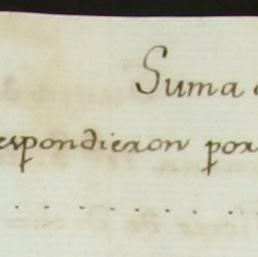 Suma
espondieron por